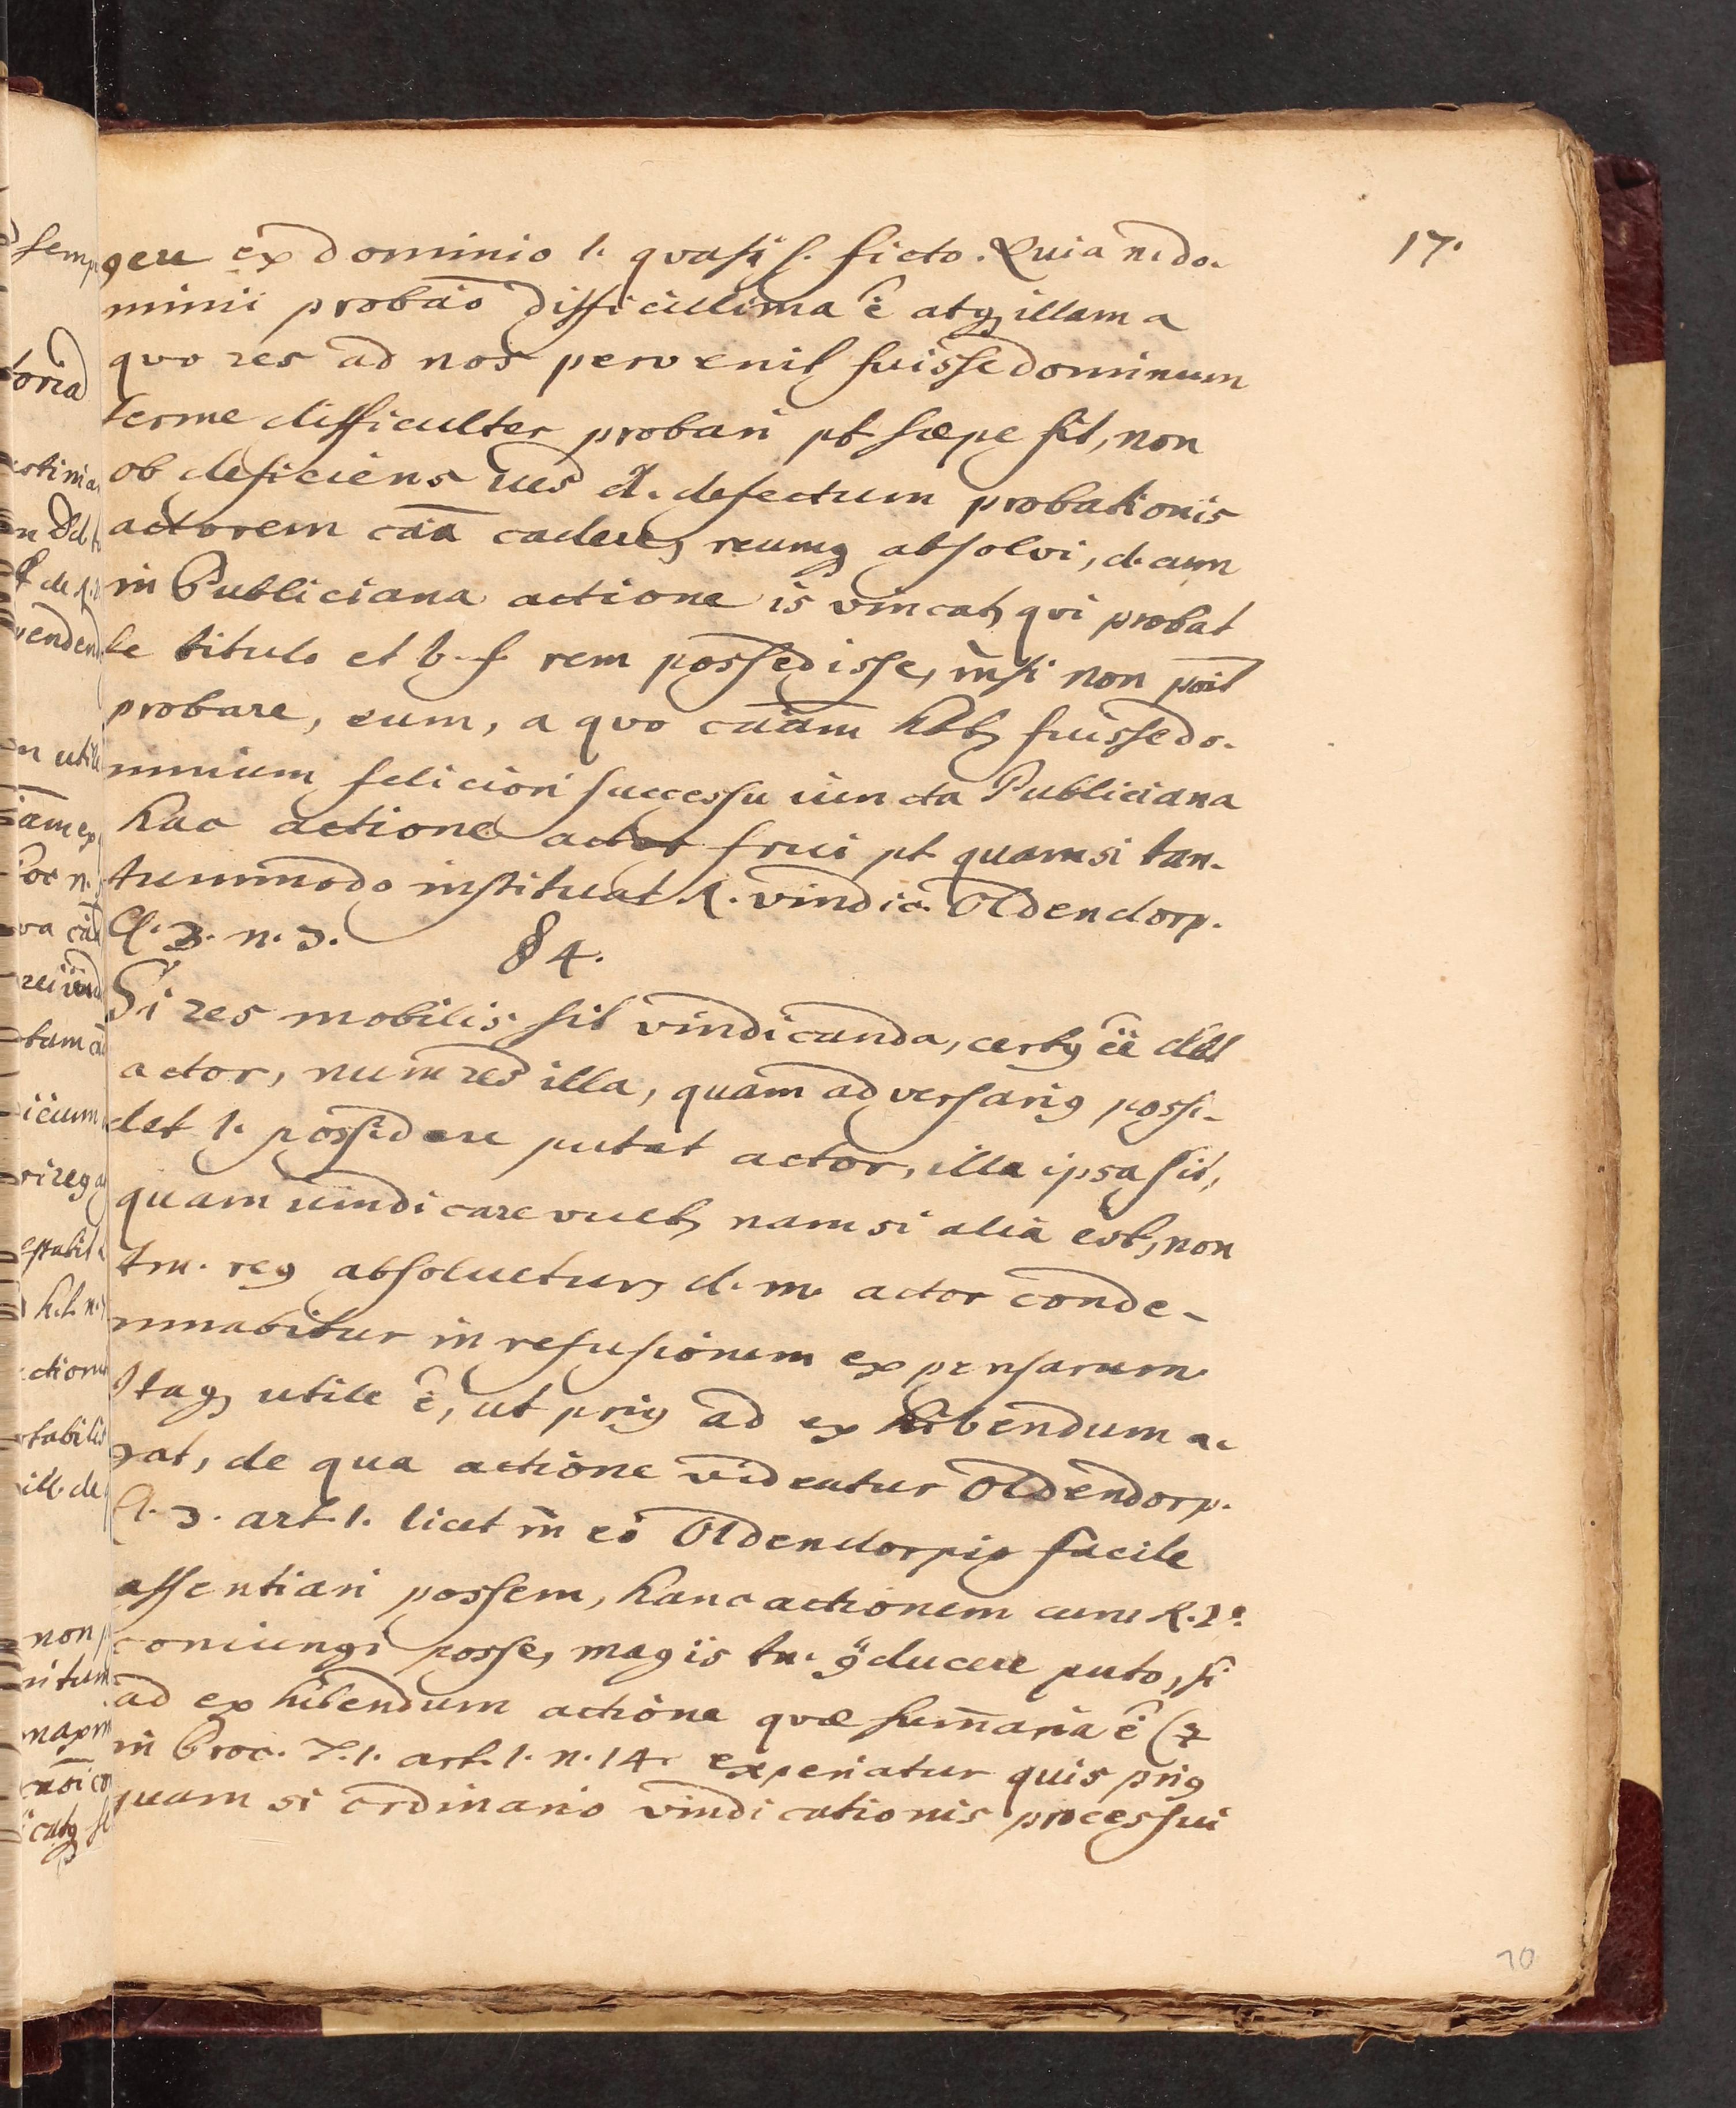 17.
geu ex dominio l. quasi s. ficto. Quia n. do-
minii probaō difficillima ē atq illam a
quo res ad nos pervenit fuisse dominum
ferme difficulter probari pt sæpe fit, non
ob deficiens ius d. defectum probationis
actorem cāā cadere, reumq absolvi, d. cum
in Publiciana actione is vincat, qvi probat
se titulo et b. f. rem possedisse, etsi non poīt
probare, eum, a quo cāām hēt, fuisse do-
minium feliciori successu iuncta Publiciana
hac actione actor frui pt quam si tan-
tummodo instituat R. vindic. Oldendorp.
Cl. 3. n. 3.
§ 4.
Si res mobilis sit vindicanda, certq ēē debt
actor, num res illa, quam adversariq possi-
det l. possidere putat actor, illa ipsa sit,
quam vindicare vult, nam si alia est, non
tm. req absoluetur, d. m. actor conde-
mnabitur in refusionem expensarum.
Itaq utile ē, ut priq ad exhibendum a-
gat, de qua actione videatur Oldendorp.
Cl. 3. art. 1. licet in eō Oldendorpio facile
assentiari possem, hanc actionem cum R. 2ē
coniungi posse, magis tn. 9ducere puto, si
ad exhibendum actione quæ sum̄aria ē (
in Proc. T. 1. art. 1. n. 14. experiatur quis priq
quam si ordinario vindicationis processui
70